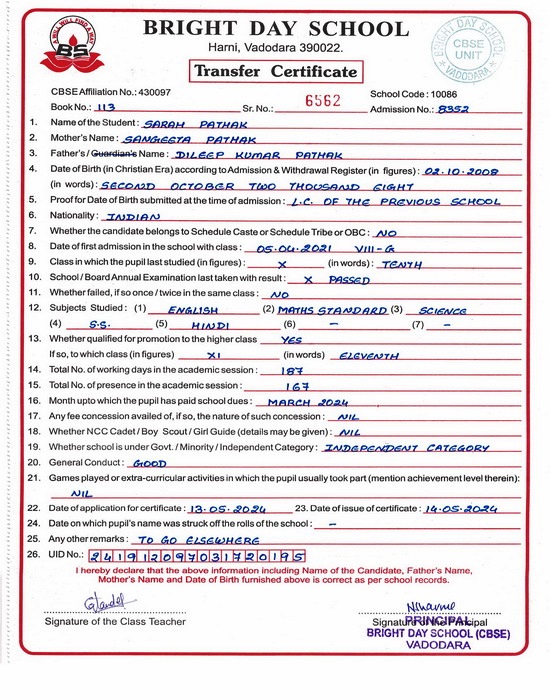 A WILL WILL FIND A WAY
BS
BRIGHT DAY SCHOOL
Harni, Vadodara 390022.
BRIGHT DAY SCHOOL
CBSE
UNIT
VADODARA
Transfer Certificate
CBSE Affiliation No.: 430097 School Code : 10086
Book No.: 113 Sr. No.: 6562 Admission No.: 8352
1. Name of the Student : SARAH PATHAK
2. Mother's Name : SANGEETA PATHAK
3. Father's / Guardian's Name : DILEEP KUMAR PATHAK
4. Date of Birth (in Christian Era) according to Admission & Withdrawal Register (in figures) : 02.10.2008
(in words) : SECOND OCTOBER TWO THOUSAND EIGHT
5. Proof for Date of Birth submitted at the time of admission : L.C. OF THE PREVIOUS SCHOOL
6. Nationality : INDIAN
7. Whether the candidate belongs to Schedule Caste or Schedule Tribe or OBC : NO
8. Date of first admission in the school with class : 05.04.2021 VIII-G
9. Class in which the pupil last studied (in figures) : X (in words) : TENTH
10. School / Board Annual Examination last taken with result : X PASSED
11. Whether failed, if so once / twice in the same class : NO
12. Subjects Studied : (1) ENGLISH (2) MATHS STANDARD (3) SCIENCE
(4) S.S. (5) HINDI (6) – (7) –
13. Whether qualified for promotion to the higher class YES
If so, to which class (in figures) XI (in words) ELEVENTH
14. Total No. of working days in the academic session : 187
15. Total No. of presence in the academic session : 167
16. Month upto which the pupil has paid school dues : MARCH 2024
17. Any fee concession availed of, if so, the nature of such concession : NIL
18. Whether NCC Cadet / Boy Scout / Girl Guide (details may be given) : NIL
19. Whether school is under Govt. / Minority / Independent Category : INDEPENDENT CATEGORY
20. General Conduct : GOOD
21. Games played or extra-curricular activities in which the pupil usually took part (mention achievement level therein) :
NIL
22. Date of application for certificate : 13.05.2024 23. Date of issue of certificate : 14.05.2024
24. Date on which pupil's name was struck off the rolls of the school : –
25. Any other remarks : TO GO ELSEWHERE
26. UID No.: 241912097031720195
I hereby declare that the above information including Name of the Candidate, Father's Name,
Mother's Name and Date of Birth furnished above is correct as per school records.
Signature of the Class Teacher Signature of the Principal
PRINCIPAL
BRIGHT DAY SCHOOL (CBSE)
VADODARA